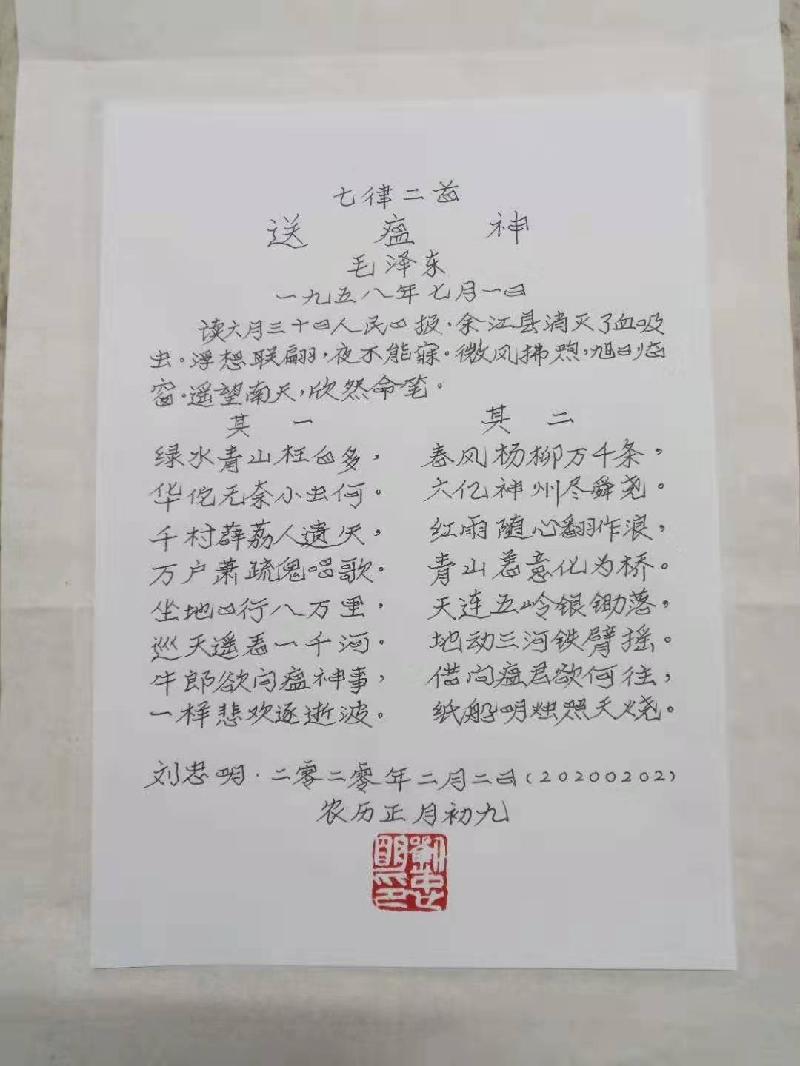 七律二首
送瘟神
毛泽东
一九五八年七月一日
读六月三十日人民日报·余江县消灭了血吸
虫。浮想联翩，夜不能寐·微风拂煦，旭日临
窗·遥望南天，欣然命笔。
其一
绿水青山枉自多，
华佗无奈小虫何。
千村薜荔人遗矢，
万户萧疏鬼唱歌·
坐地日行八万里，
巡天遥看一千河·
牛郎欲问瘟神事，
一样悲欢逐逝波。
其二
春风杨柳万千条，
六亿神州尽舜尧。
红雨随心翻作浪，
青山着意化为桥。
天连五岭银锄落，
地动三河铁臂摇。
借问瘟君欲何往，
纸船明烛照天烧。
刘忠明·二零二零年二月二日(20200202)
农历正月初九
刘忠明印